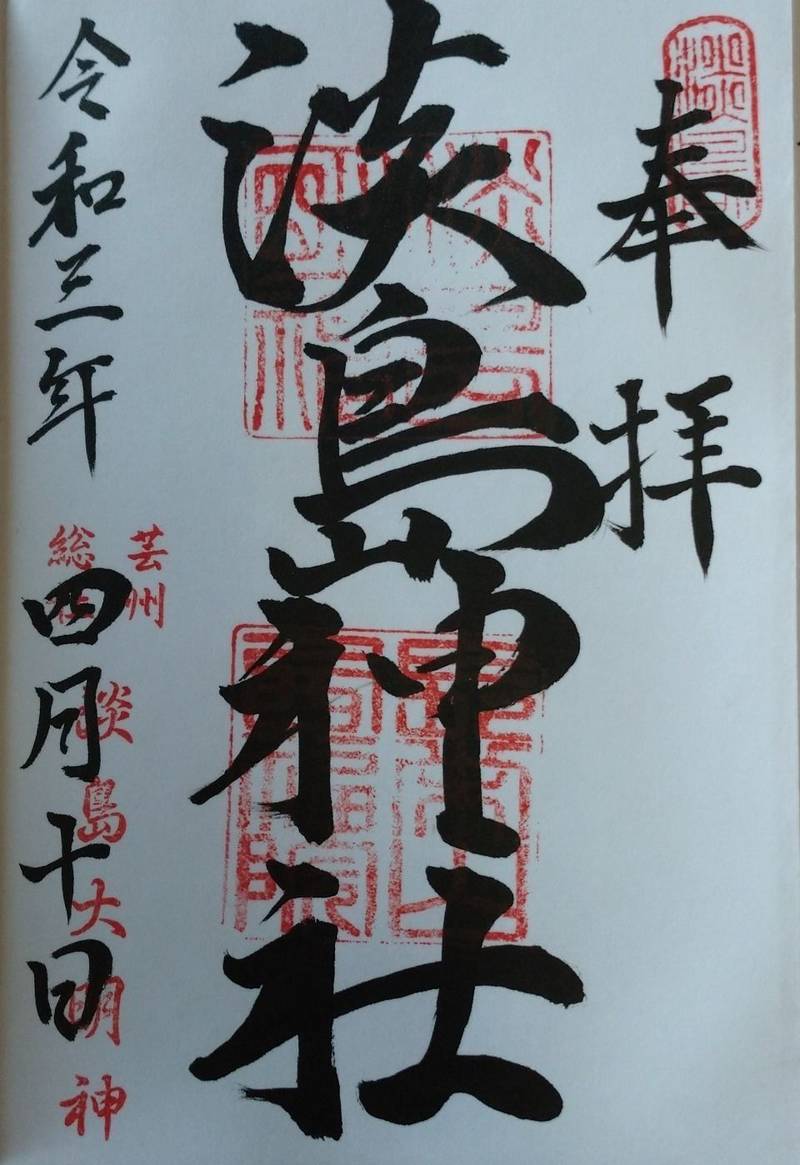 奉拝
淡島神社
芸州
総社
淡島大明神
令和三年
四月十日